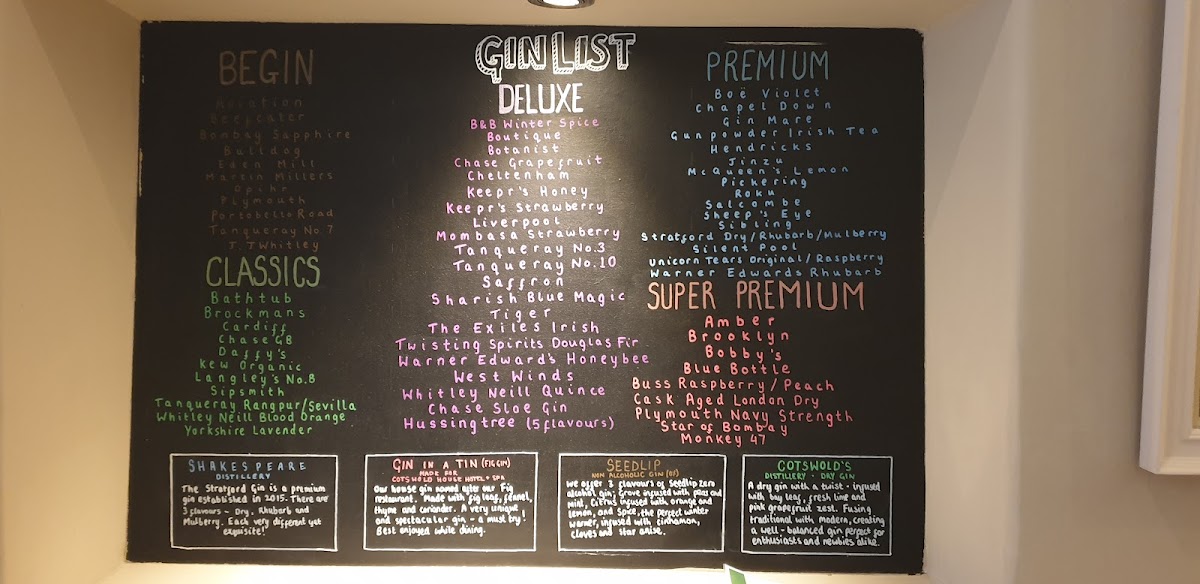 GIN LIST
BEGIN
Aviation
Beefeater
Bombay Sapphire
Bulldog
Eden Mill
Martin Millers
Opihr
Plymouth
Portobello Road
Tanqueray No 7
J.J Whitley
CLASSICS
Bathtub
Brockmans
Cardiff
Chase GB
Daffy's
Kew Organic
Langley's No.8
Sipsmith
Tanqueray Rangpur/Sevilla
Whitley Neill Blood Orange
Yorkshire Lavender
DELUXE
B&B Winter Spice
Boutique
Botanist
Chase Grapefruit
Cheltenham
Keepr's Honey
Keepr's Strawberry
Liverpool
Mombasa Strawberry
Tanqueray No.3
Tanqueray No.10
Saffron
Sharish Blue Magic
Tiger
The Exiles Irish
Twisting Spirits Douglas Fir
Warner Edward's Honeybee
West Winds
Whitley Neill Quince
Chase Sloe Gin
Hussingtree (5 flavours)
PREMIUM
Boë Violet
Chapel Down
Gin Mare
Gunpowder Irish Tea
Hendricks
Jinzu
McQueen's Lemon
Pickering
Roku
Salcombe
Sheep's Eye
Sibling
Stratford Dry/Rhubarb/Mulberry
Silent Pool
Unicorn Tears Original/Raspberry
Warner Edwards Rhubarb
SUPER PREMIUM
Amber
Brooklyn
Bobby's
Blue Bottle
Buss Raspberry/Peach
Cask Aged London Dry
Plymouth Navy Strength
Star of Bombay
Monkey 47
SHAKESPEARE
DISTILLERY
The Stratford Gin is a premium
gin established in 2015. There are
3 flavours - Dry, Rhubarb and
Mulberry. Each very different yet
exquisite!
GIN IN A TIN (FIG GIN)
MADE FOR
COTSWOLD HOUSE HOTEL + SPA
Our house gin named after our Fig
restaurant. Made with fig leaf, fennel,
thyme and coriander. A very unique
and spectacular gin - a must try!
Best enjoyed while dining.
SEEDLIP
NON ALCOHOLIC GIN (0%)
We offer 3 flavours of Seedlip zero
alcohol gin; Grove infused with peas and
mint, Citrus infused with orange and
lemon, and Spice, the perfect winter
warmer, infused with cinnamon,
cloves and star anise.
COTSWOLD'S
DISTILLERY - DRY GIN
A dry gin with a twist - infused
with bay leaf, fresh lime and
pink grapefruit zest. Fusing
traditional with modern, creating
a well-balanced gin perfect for
enthusiasts and newbies alike.